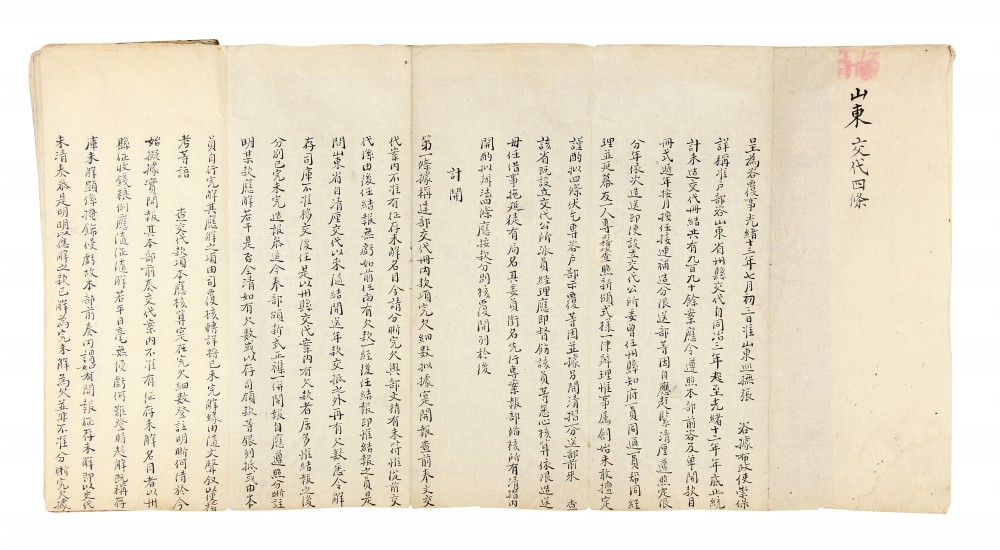 山東交代四條
呈為咨覆事光緒十三年七月初三日准山東巡撫張 咨據布政使崇保
詳稱准戶部咨山東省州縣交代自同治三年起至光緒十二年年底止統
計未造交代冊結共有九百九十餘案應令遵照本部前咨及單開款目
冊式遞年按月按任接連補造分限送部等因自應趕緊清厘遵照定限
分年依次造送即便設立交代公所委曾任州縣知府一員同通一員幫同經
理並延幕友一人專司稽查照新頒式樣一律辦理惟事屬創始未敢擅定
謹酌擬四條伏乞專咨戶部示覆等因並據另開清摺分送部前來 查
該省既設立交代公所派員經理應即督飭該員等悉心核算依限造送
毋任借事拖延徒有局名其委員銜名先行專案報部備核所有清摺內
開酌擬辦法四條應按款分別核覆開列於後
計開
第一條據稱造部交代冊內款項完欠細數擬據寔開報查前奉文交
代案內不准有征存未解名目今請分晰完欠與部文稍有未符惟從前交
代係由後任結報無虧如前任尚有欠款一經後任結報即惟結報之員是
問山東省自清厘交代以來隨結開送年款交抵之外再有欠數悉令解
存司庫不准移交後任是以州縣交代案內有欠款者居多惟結報之後
分別已完未完造報恭送今奉部頒新式正雜一併開報自應遵照分晰註
明某款應解若干是否全清如有欠數或以存司領款等銀列抵或由本
員自行完解其應解之項由司覆核轉詳將已未完解緣由隨文聲敘以便稽
考等語 查交代款項本應核算寔在完欠細數登註明晰何待於今
始擬據實開報其本部前奏交代案內不准有征存未解名目者以州
縣征收錢糧例應隨征隨解若平日毫無侵虧何難登時起解既稱存
庫未解顯係挪移侵虧故本部前奏內謂如有開報征存未解即以交代
未清奏參是明明以應解之款已解為完未解為欠並非不准分晰完欠據